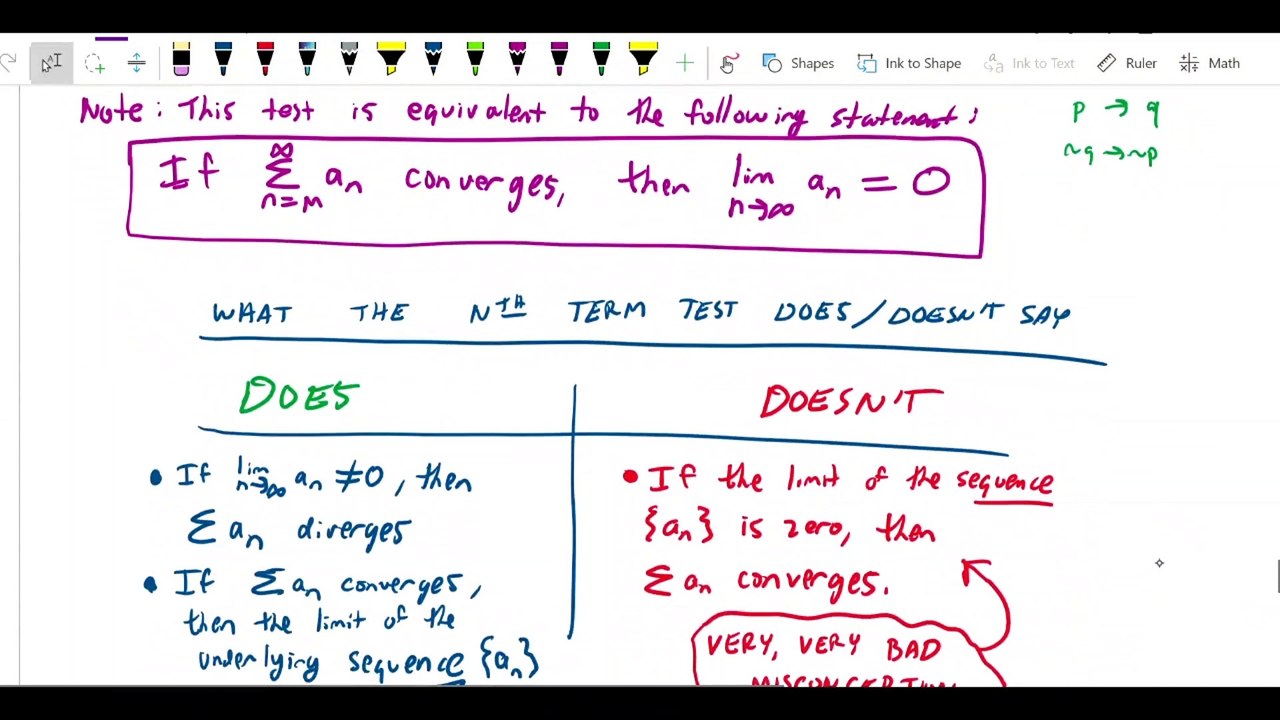 Shapes Ink to Shape Ink to Text Ruler Math
Note: This test is equivalent to the following statement:
p → q
~q → ~p
If ∞∑n=M an converges, then lim n→∞ an = 0
WHAT THE NTH TERM TEST DOES/DOESN'T SAY
DOES
DOESN'T
• If lim n→∞ an ≠ 0, then
∑ an diverges
• If ∑ an converges,
then the limit of the
underlying sequence {an}
• If the limit of the sequence
{an} is zero, then
∑ an converges.
VERY, VERY BAD
MISCONCEPTION